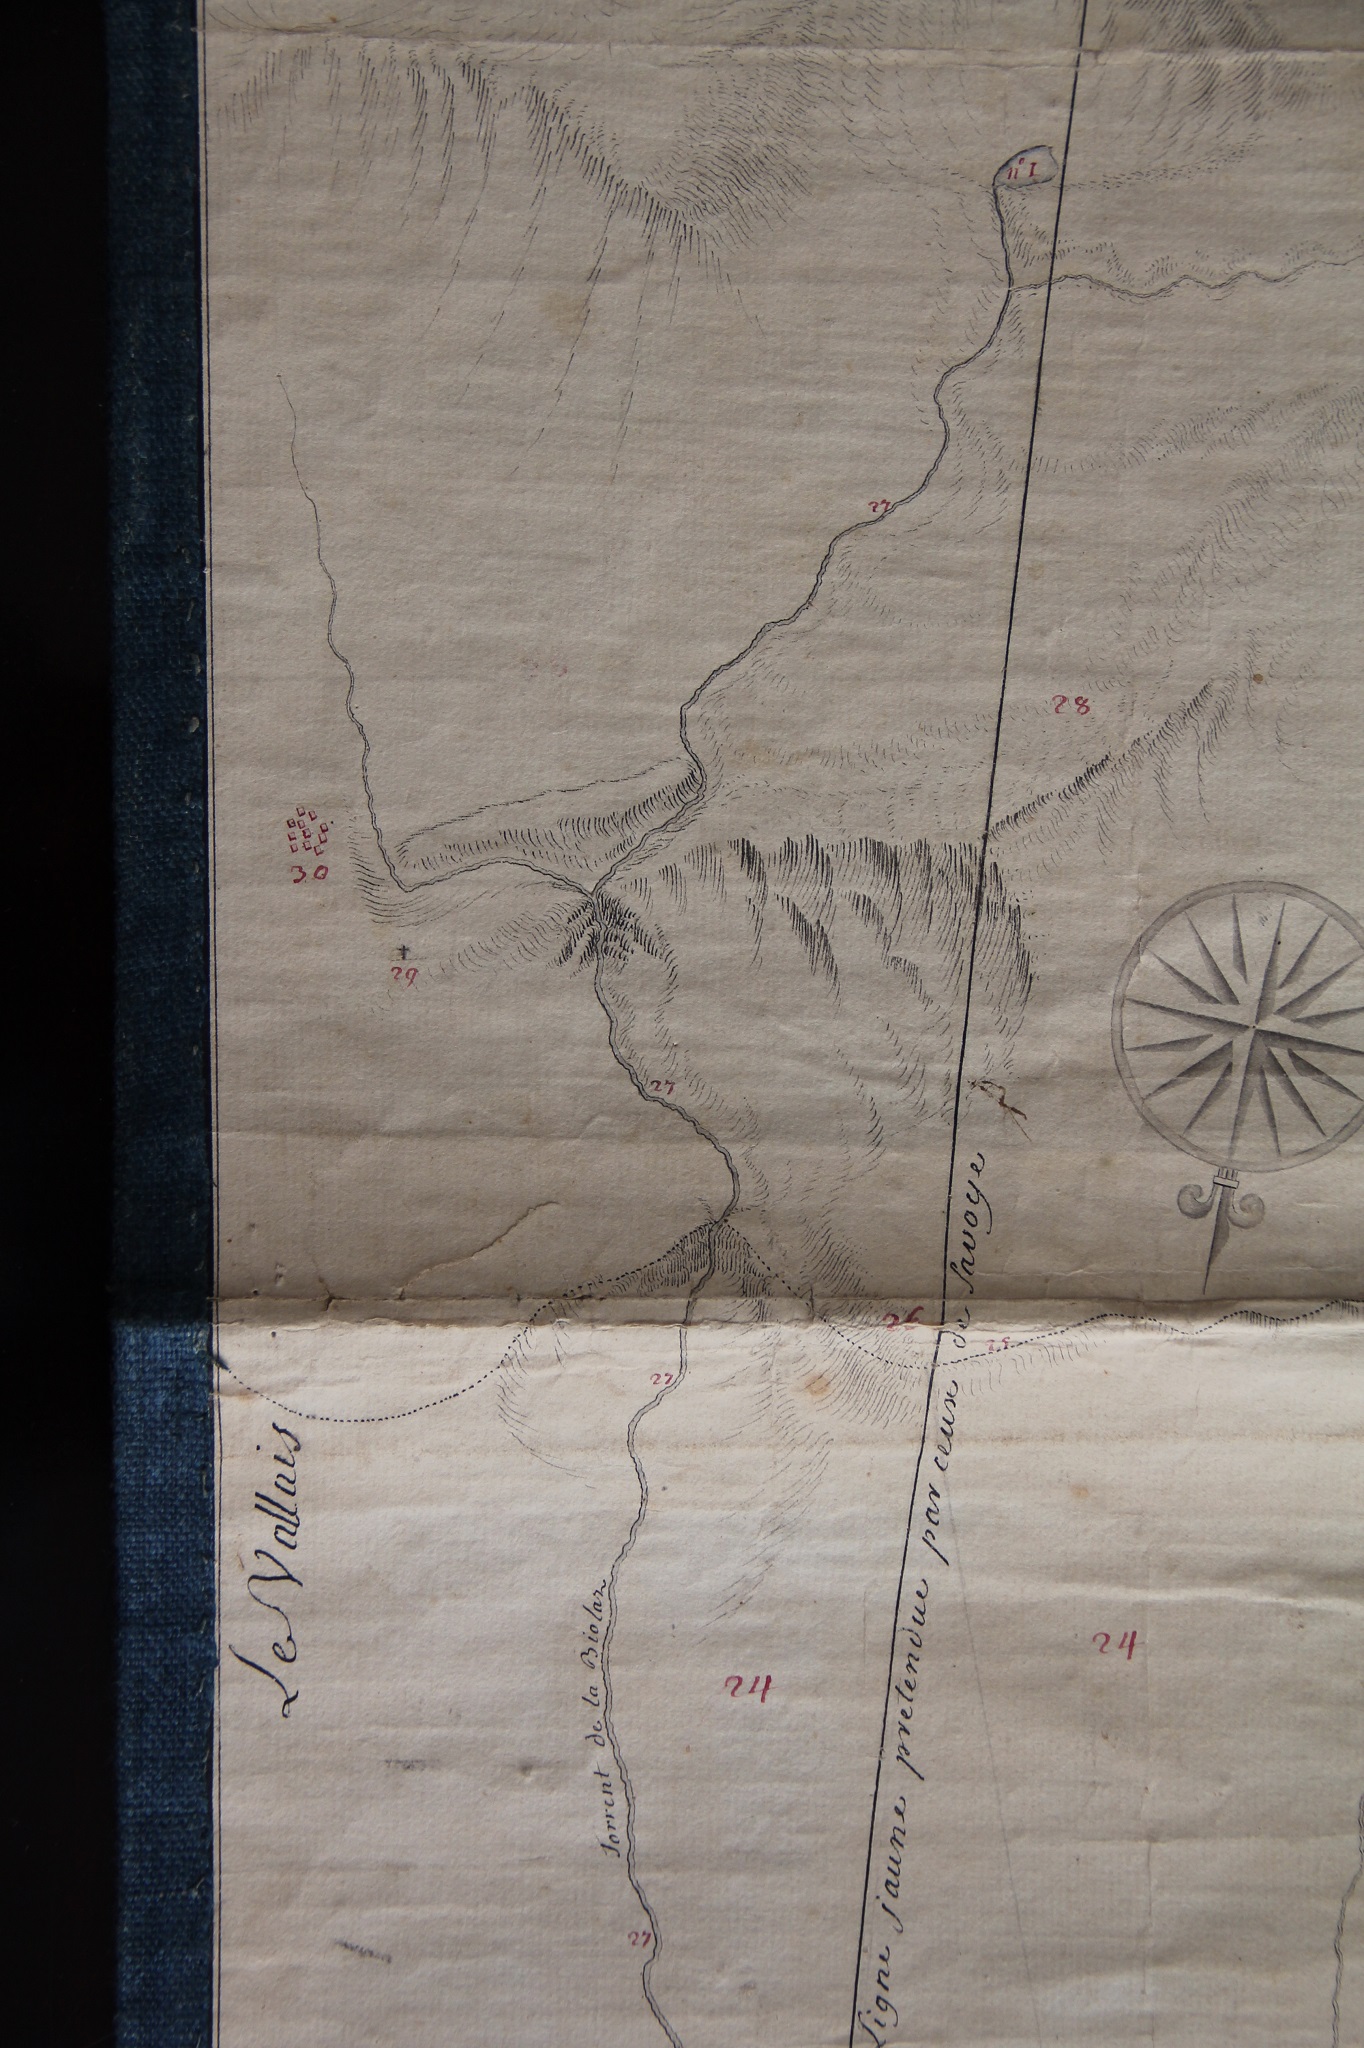 27
28
30
29
27
26
25
27
Le Vallais
Torrent de la Biolaz
24
24
Ligne jaune pretendue par ceux de Savoye
27